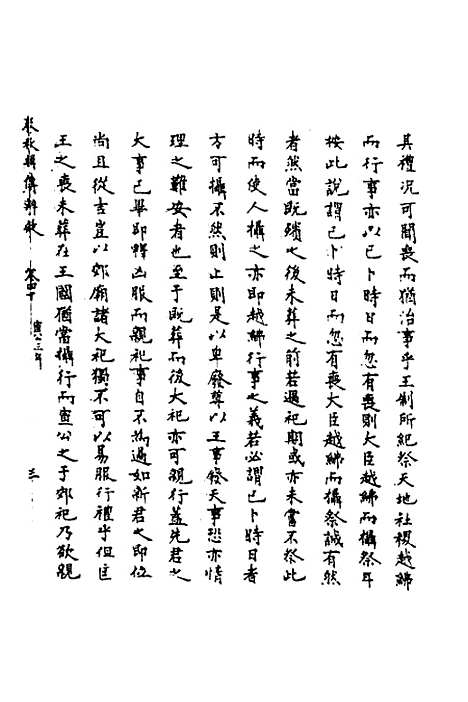 其禮況可聞喪而猶治事乎王制所紀祭天地社稷越紼
而行事亦以已卜時日而忽有喪則大臣越紼而攝祭耳
按此說謂已卜時日而忽有喪大臣越紼而攝祭誠有然
者然當既殯之後未葬之前若遇祀期或亦未嘗不祭此
時而使人攝之亦即越紼行事之義若必謂已卜時日者
方可攝不然則止則是以卑廢尊以王事廢天事恐亦情
理之難安者也至于既葬而後大祀亦可親行蓋先君之
大事已畢即釋凶服而親祀事自不為過如新君之即位
尚且從吉豈以郊廟諸大祀獨不可以易服行禮乎但匡
王之喪未葬在王國猶當攝行而宣公之于郊祀乃欲親
春秋輯傳辨疑 卷四十 宣公三年 三